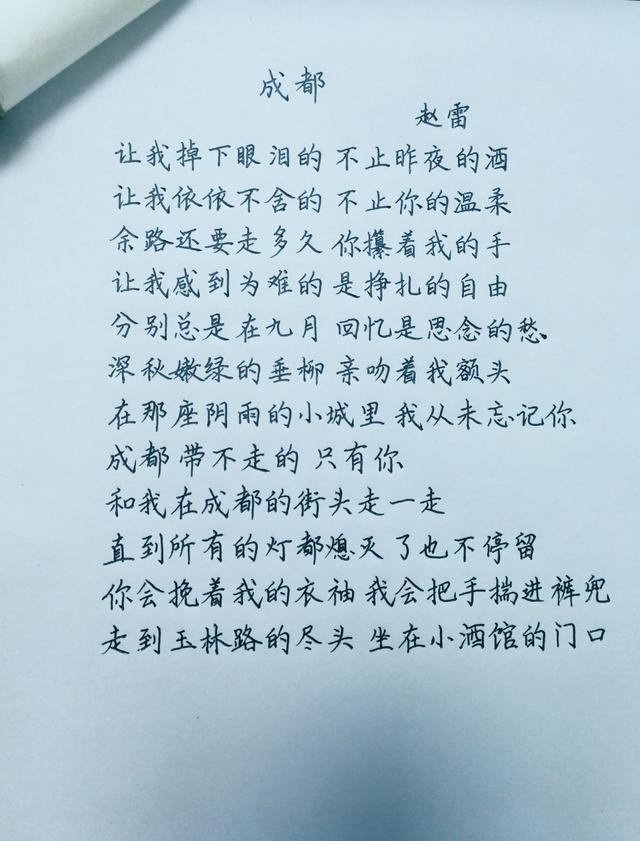 成都
赵雷
让我掉下眼泪的 不止昨夜的酒
让我依依不舍的 不止你的温柔
余路还要走多久 你攥着我的手
让我感到为难的 是挣扎的自由
分别总是在九月 回忆是思念的愁
深秋嫩绿的垂柳 亲吻着我额头
在那座阴雨的小城里 我从未忘记你
成都 带不走的 只有你
和我在成都的街头走一走
直到所有的灯都熄灭了也不停留
你会挽着我的衣袖 我会把手揣进裤兜
走到玉林路的尽头 坐在小酒馆的门口